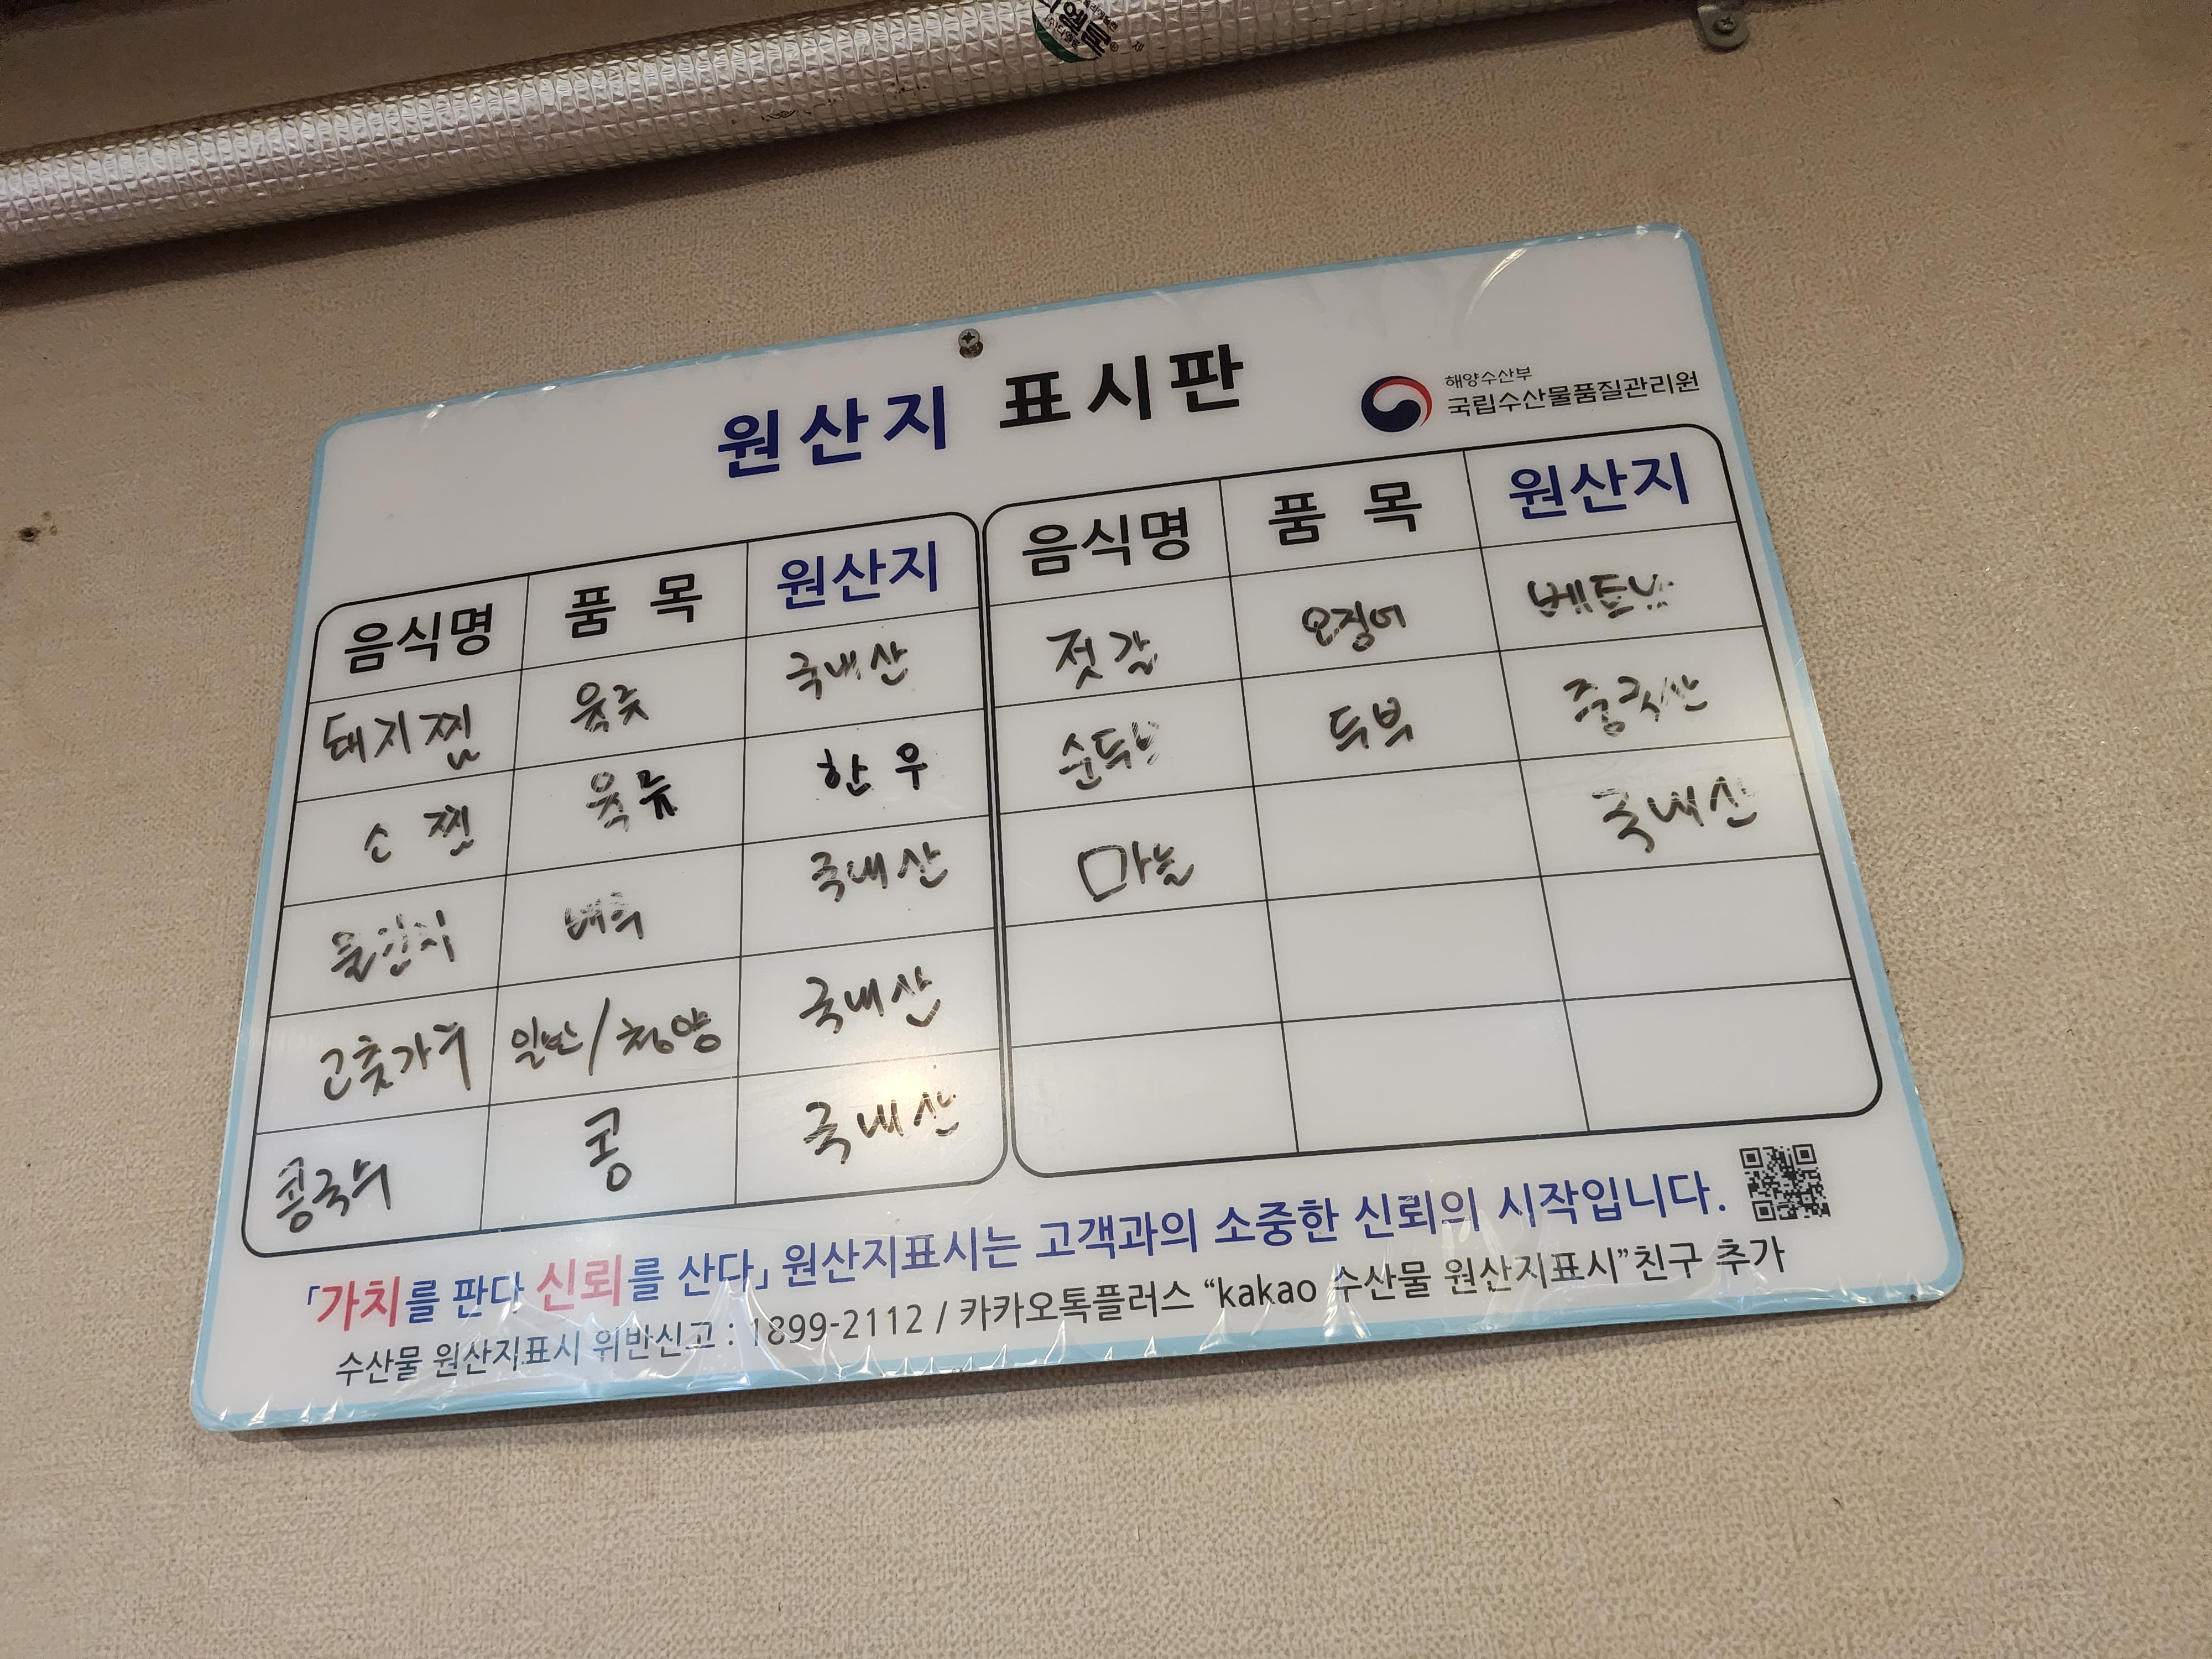 원산지 표시판
해양수산부
국립수산물품질관리원
음식명 품 목 원산지
돼지찜 육류 국내산
소 찜 육류 한우
물김치 배추 국내산
고춧가루 일반/청양 국내산
콩국수 콩 국내산
음식명 품 목 원산지
젓갈 오징어 베트남
순두부 두부 중국산
마늘 국내산
「가치를 판다 신뢰를 산다」 원산지표시는 고객과의 소중한 신뢰의 시작입니다.
수산물 원산지표시 위반신고 : 1899-2112 / 카카오톡플러스 “kakao 수산물 원산지표시”친구 추가